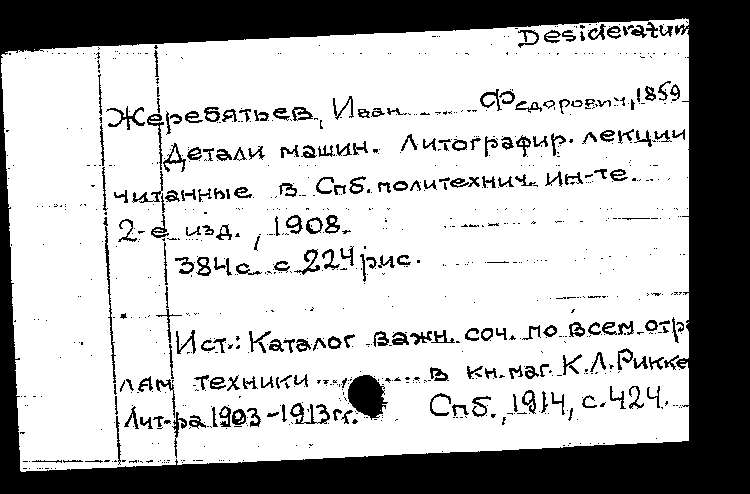 Desideratum
Жеребятьев, Иван ........ Федорович, 1859
Детали машин. Литографир. лекции
читанные в Спб. политехнич. ин-те.
2-е изд., 1908.
384 с. с 224 рис.
Ист.: Каталог важн. соч. по всем отра
лям техники ........... в кн. маг. К.Л. Рикке
Лит-ра 1903-1913 гг. Спб., 1914, с. 424.